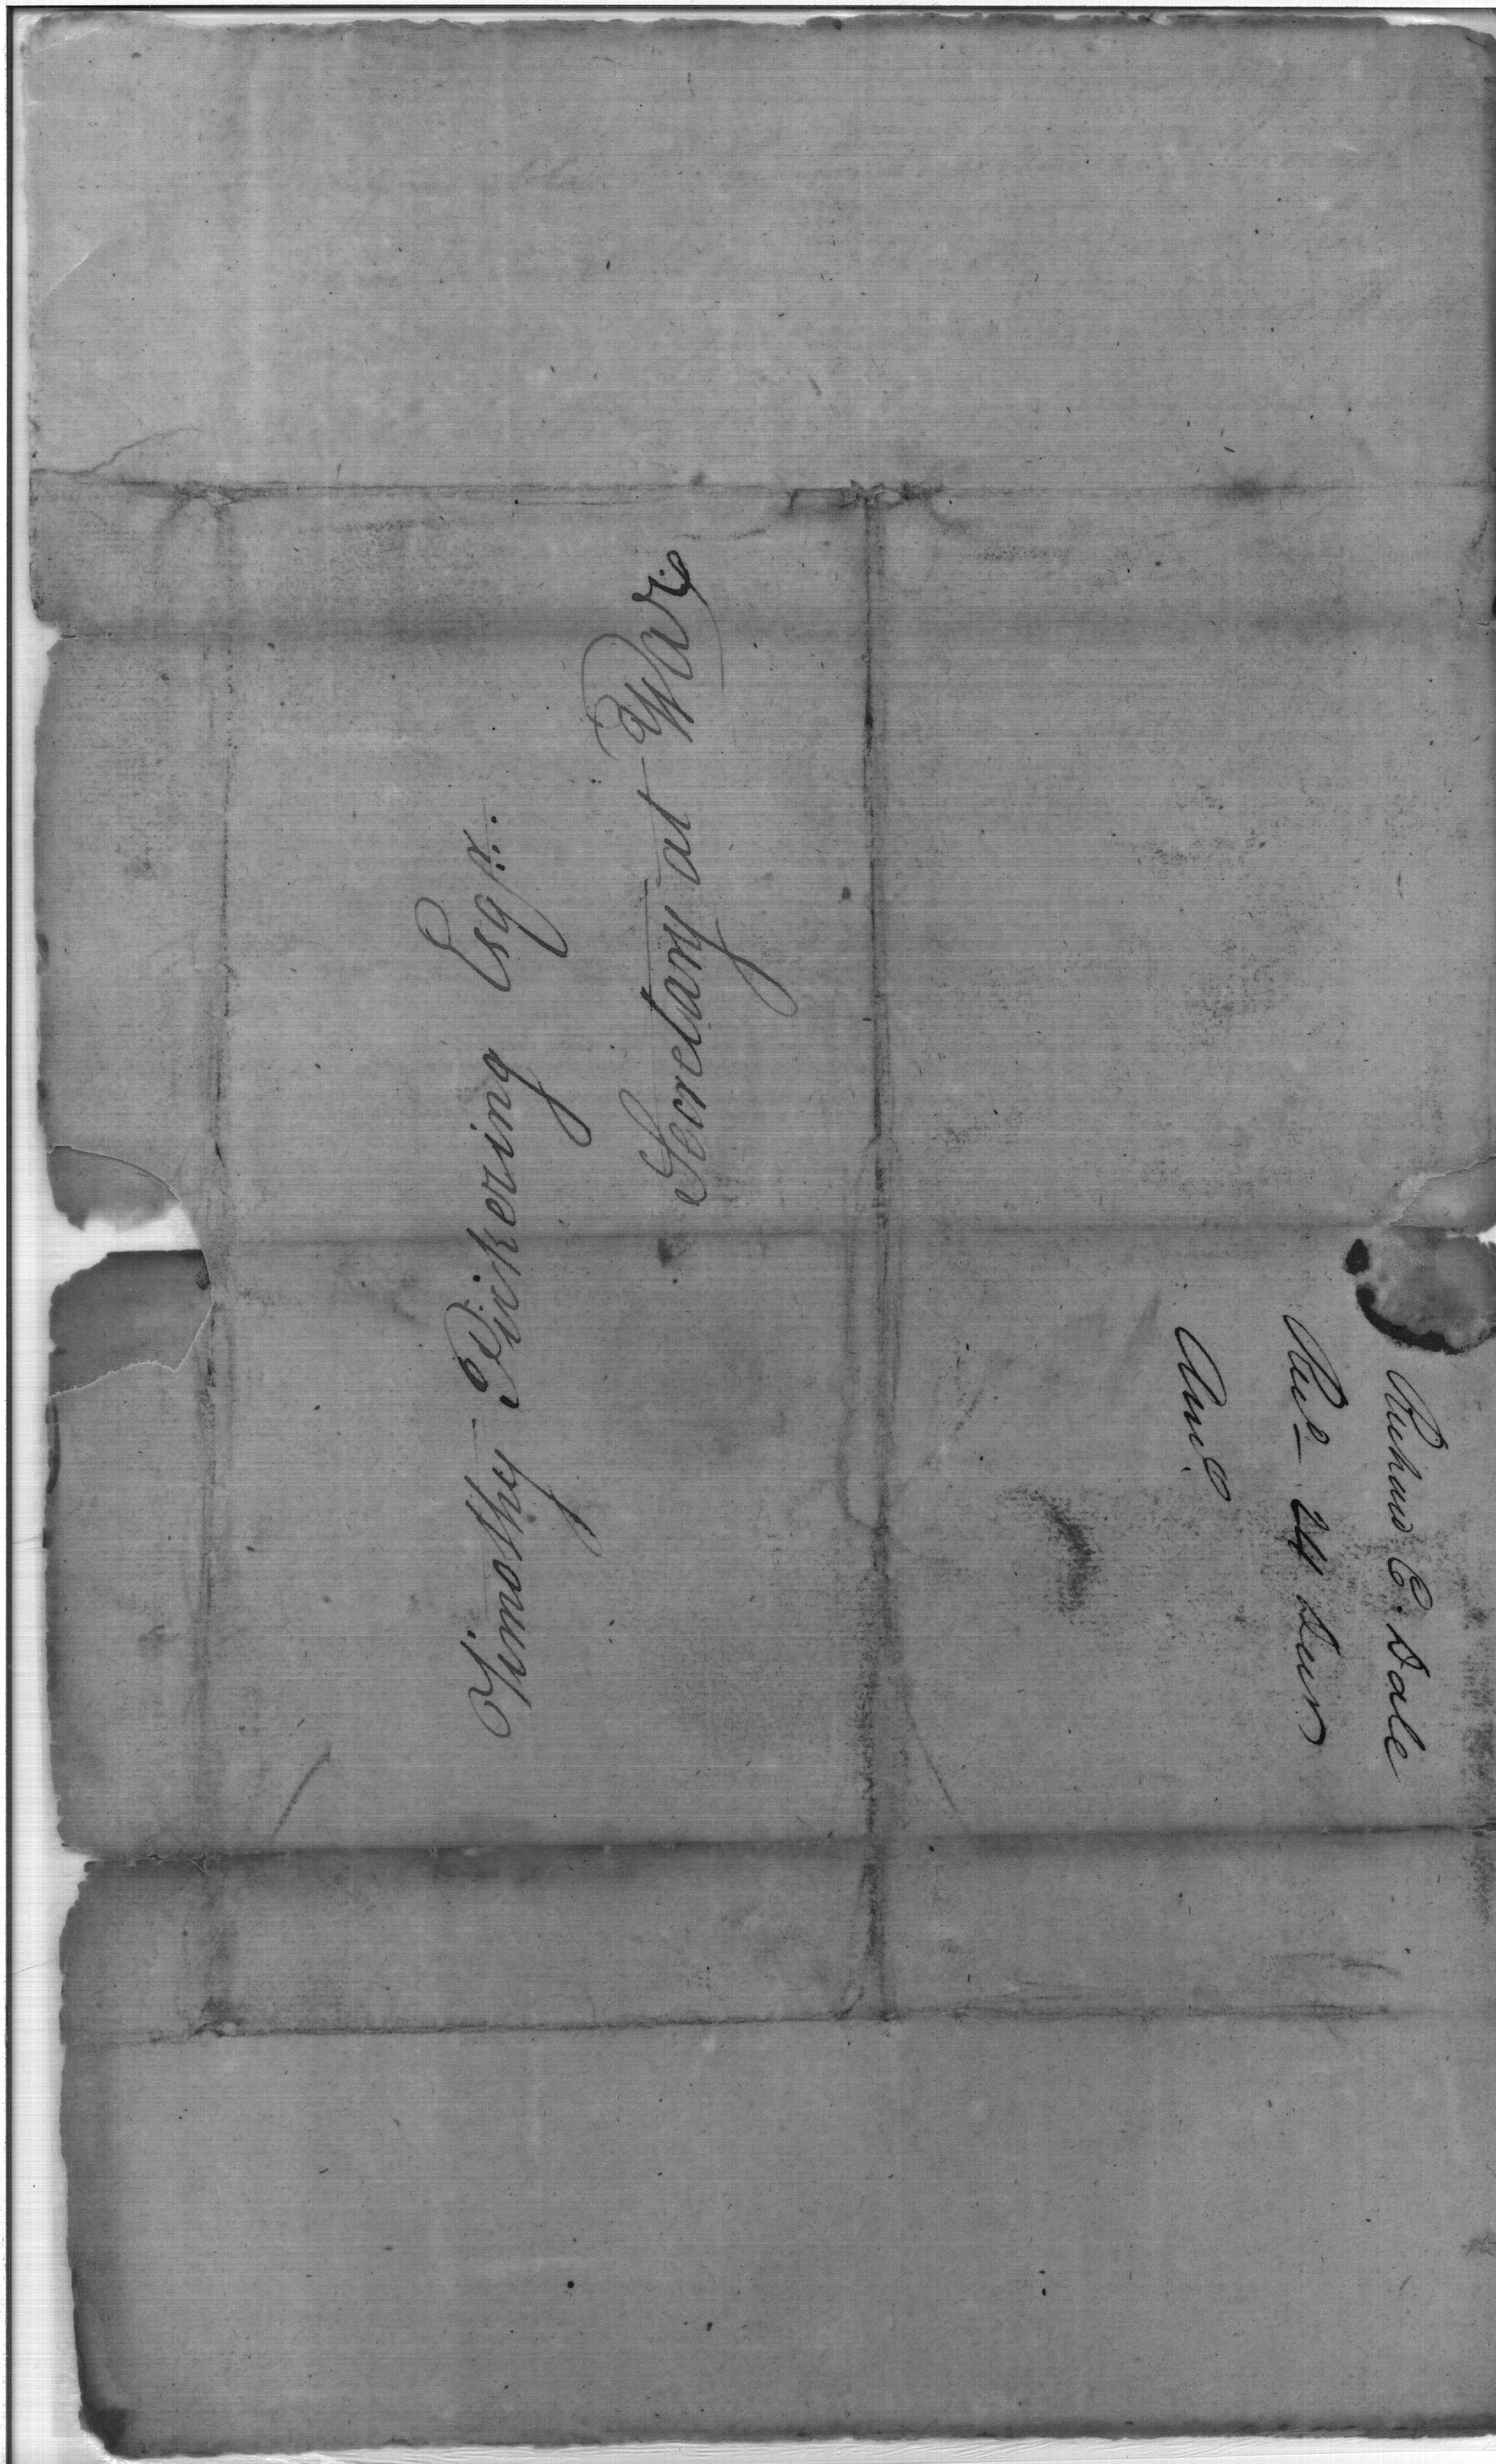 Timothy Pickering Esqr.
Secretary at War
Richard C. Dale
Recd 24 Decr
Ansd